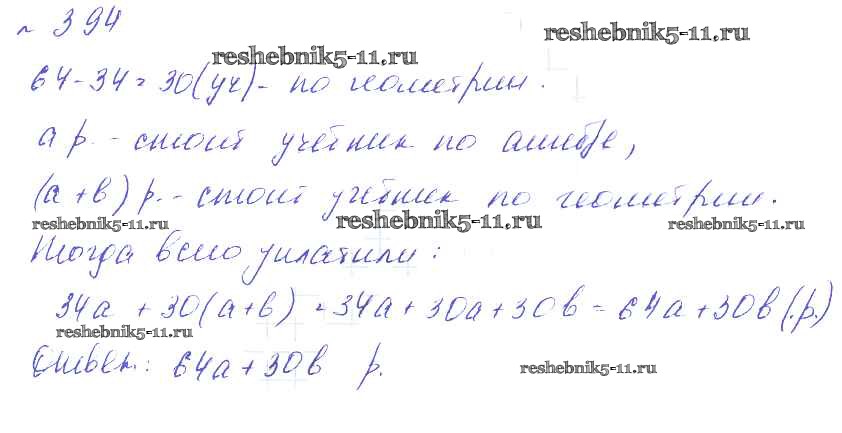 № 394
reshebnik5-11.ru
reshebnik5-11.ru
64-34=30(уч)- по геометрии.
а р. - стоит учебник по алгебре,
(а+в) р. - стоит учебник по геометрии.
reshebnik5-11.ru
reshebnik5-11.ru
reshebnik5-11.ru
Тогда всего уплатили:
34а + 30(а+в) = 34а+30а+30в = 64а+30в(р.)
reshebnik5-11.ru
Ответ: 64а+30в р.
reshebnik5-11.ru